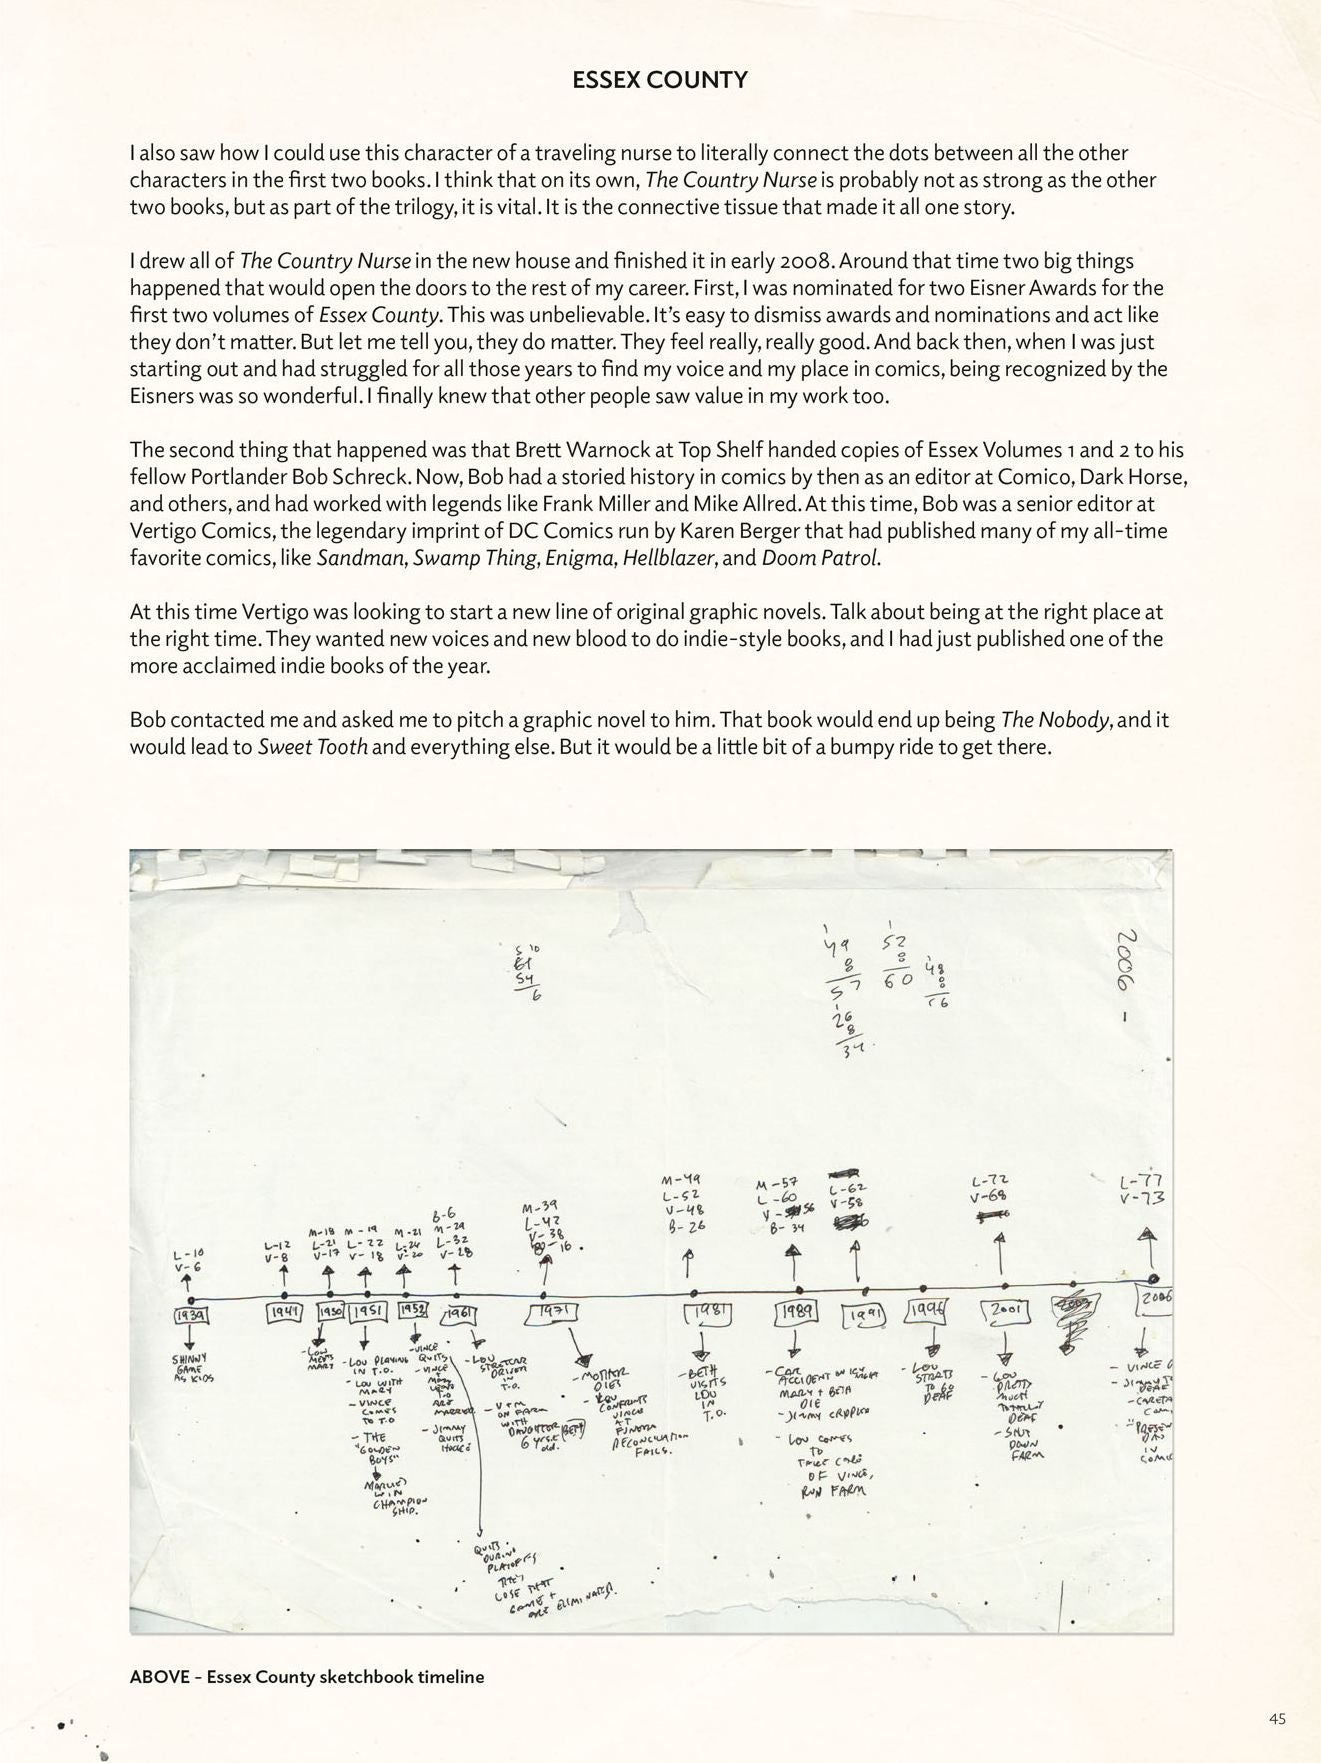 ESSEX COUNTY
I also saw how I could use this character of a traveling nurse to literally connect the dots between all the other
characters in the first two books. I think that on its own, The Country Nurse is probably not as strong as the other
two books, but as part of the trilogy, it is vital. It is the connective tissue that made it all one story.
I drew all of The Country Nurse in the new house and finished it in early 2008. Around that time two big things
happened that would open the doors to the rest of my career. First, I was nominated for two Eisner Awards for the
first two volumes of Essex County. This was unbelievable. It’s easy to dismiss awards and nominations and act like
they don’t matter. But let me tell you, they do matter. They feel really, really good. And back then, when I was just
starting out and had struggled for all those years to find my voice and my place in comics, being recognized by the
Eisners was so wonderful. I finally knew that other people saw value in my work too.
The second thing that happened was that Brett Warnock at Top Shelf handed copies of Essex Volumes 1 and 2 to his
fellow Portlander Bob Schreck. Now, Bob had a storied history in comics by then as an editor at Comico, Dark Horse,
and others, and had worked with legends like Frank Miller and Mike Allred. At this time, Bob was a senior editor at
Vertigo Comics, the legendary imprint of DC Comics run by Karen Berger that had published many of my all-time
favorite comics, like Sandman, Swamp Thing, Enigma, Hellblazer, and Doom Patrol.
At this time Vertigo was looking to start a new line of original graphic novels. Talk about being at the right place at
the right time. They wanted new voices and new blood to do indie-style books, and I had just published one of the
more acclaimed indie books of the year.
Bob contacted me and asked me to pitch a graphic novel to him. That book would end up being The Nobody, and it
would lead to Sweet Tooth and everything else. But it would be a little bit of a bumpy ride to get there.
5 10
61
54
6
49
8
57
26
8
34
52
8
60
48
8
2006 -
L-10
V-6
1939
SHINNY
GAME
AS KIDS
L-12
V-8
1941
M-18
L-21
V-17
1950
- LOU
MEETS
MARY
M-19
L-22
V-18
1951
- LOU PLAYING
IN T.O.
- LOU WITH
MARY
- VINCE
COMES
TO T.O
- THE
"GOLDEN
BOYS"
WIN
CHAMPION
SHIP.
M-21
L-24
V-20
1953
- VINCE
QUITS
- VINCE
+
MARY
ARE
MARRIED
- JIMMY
QUITS
QUITS
DURING
PLAYOFFS
THEY
LOSE THAT
GAME +
ARE ELIMINATED.
B-6
M-29
L-32
V-28
1961
- LOU
STREETCAR
DRIVER
IN
T.O.
- V+M
ON FARM
WITH
DAUGHTER (BETH)
6 yrs.
old.
M-39
L-42
V-38
B-16
1971
- MOTHER
DIES
- LOU
CONFRONTS
VINCE
AT
FUNERAL
RECONCILIATION
FAILS.
M-49
L-52
V-48
B-26
1981
- BETH
VISITS
LOU
IN
T.O.
M-57
L-60
V-56
B-34
1989
- CAR
ACCIDENT ON ICY NIGHT
MARY + BETH
DIE
- JIMMY CRIPPLED
- LOU COMES
TO
TAKE CARE
OF VINCE,
RUN FARM
L-62
V-58
1991
1996
- LOU
STARTS
TO GO
DEAF
L-72
V-68
2001
- LOU
PRETTY
MUCH
TOTALLY
DEAF
- SHUT
DOWN
FARM
2003
L-77
V-73
2006
- VINCE
DEAF
- CARETA
- "PRESEN
DAY
IN
COMIC
ABOVE - Essex County sketchbook timeline
45